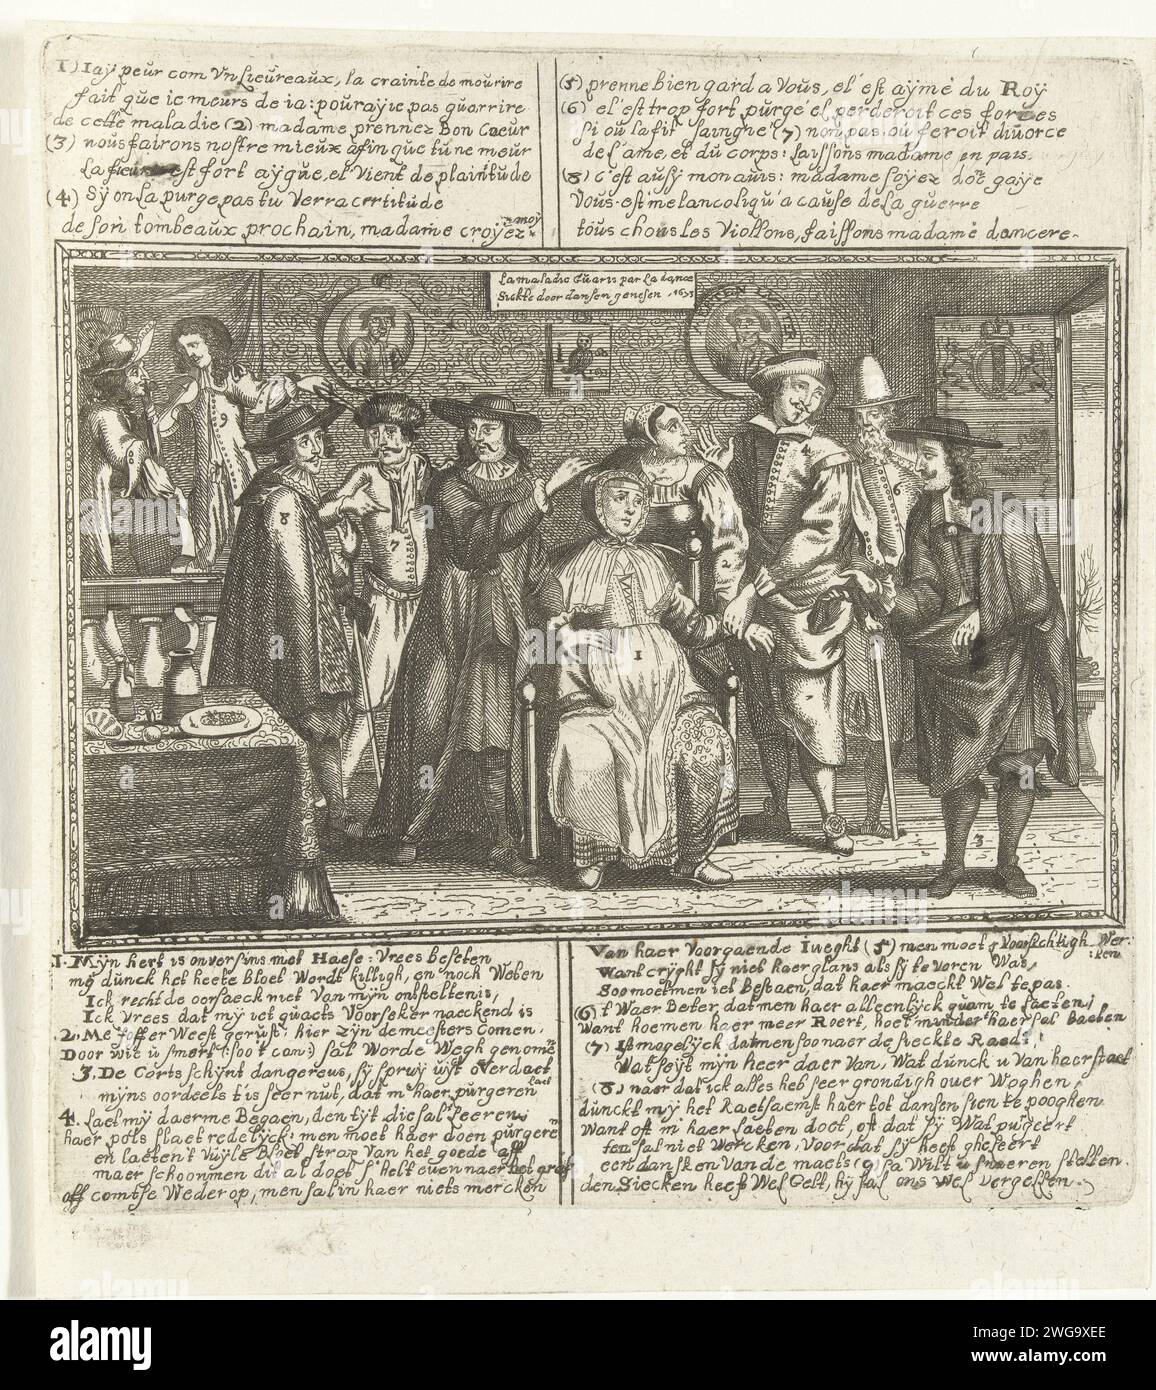 1) Iaÿ peur com vn Lieureaux, la crainte de mourire
fait que ie meurs de ia: pouraÿie pas guarrire
de cette maladie (2) madame prennez Bon Coeur
(3) nous fairons nostre mieux afin que tu ne meur
La est fort aÿgue, el vient de plaintude
(4) Sÿ on la purge pas tu verra certitude
de son tombeaux prochain, madame croÿez moÿ
(5) prenne bien gard a vous, el est aÿmé du Roÿ
(6) el est trop fort purgé el perderoit ces forces
Si ou la fit sainghe (7) non pas ou feroit diuorce
de l'ame, et du corps: Laissons madame en pais.
(8) C'est aussÿ mon auis: madame soÿez gaÿe
Vous est melancoliqu a cause de la guerre
tous chous les Viollons, faissons madame dancere.
La maladie Guaris par La dance
Sickte door dansen genesen
1 2 3 4 5 6 7 8 9
1. Mÿn hert is onversins met Haese: Vrees beseten
mÿ dunck het heete bloet wordt killigh, en noch Weten
Ick recht de oorsaeck niet van mÿn ontsteltenis,
Ick vrees dat mÿ iet quaets voorseker naeckend is
2. Me Joffer Weest gerust: hier zÿn de meesters comen.
Door wie u smert (soo t can) sal worde Wegh genome
3. De Corts schÿnt dangereus, sÿ sprwÿ uÿt overdaet
mÿns oordeels t'is seer nut, dat m' haer purgeren laet
4. Laet mÿ daerme Begaen, den tÿt die sal t Leeren
haer pols slaet redelÿck: men moet haer doen purgere
en laeten t vuÿle Bloet strax van het goede aff
maer schoonmen dit al doet s'helt euen naer het graf
off comtse Wederop, men sal in haer niets mercken
Van haer Voorgaende Iueght (5) men moet voorsichtigh Wercken
Want crÿght sÿ niet haer glans als sÿ te voren Was,
Soo moetmen iet bestaen, dat haer maeckt Wel te pas.
(6) t Waer Beter dat men haer alleenlÿck quam te laeten
Want hoe men haer meer Roert, hoet minder haer sal baeten
(7) Ist mogelÿck datmen soo naer de sieckte Raedt
Wat seÿt mÿn heer daer Van, Wat dunck u van haer staet
(8) naer dat ick alles heb seer grondigh over Woghen
dunckt mÿ het Raetsaemst haer tot dansen sien te pooghen.
Want oft m haer laeten doet, oft dat sÿ Wat purgeert
ten sal niet Wercken, voor dat sÿ heeft gheleert
een dansken van de maets (9) sa Wilt u snaeren stellen.
den Siecken heeft Wel Gelt, hÿ sal ons Wel vergellen.
alamy
Image ID: 2WG9XEE
www.alamy.com